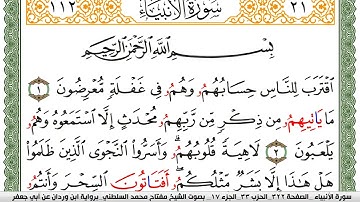 ٢١ سُورَةُ الأَنْبِيَاءِ ١١٢
بِسْمِ اللَّهِ الرَّحْمَٰنِ الرَّحِيمِ
ٱقْتَرَبَ لِلنَّاسِ حِسَابُهُمُۥ وَهُمُۥ فِى غَفْلَةٍ مُّعْرِضُونَ ١
مَا يَاتِيهِمُۥ مِن ذِكْرٍ مِّن رَّبِّهِمُۥ مُحْدَثٍ إِلَّا ٱسْتَمَعُوهُ وَهُمُۥ
يَلْعَبُونَ ٢ لَاهِيَةً قُلُوبُهُمُۥ وَأَسَرُّوا۟ ٱلنَّجْوَى ٱلَّذِينَ ظَلَمُوا۟
هَلْ هَٰذَا إِلَّا بَشَرٌ مِّثْلُكُمُۥ أَفَتَاتُونَ ٱلسِّحْرَ وَأَنتُمُۥ
سورة الأنبياء . الصفحة ٣٢٢ . الحزب ٣٣ . الجزء ١٧ . بصوت الشيخ مفتاح محمد السلطني . برواية ابن وردان عن أبي جعفر